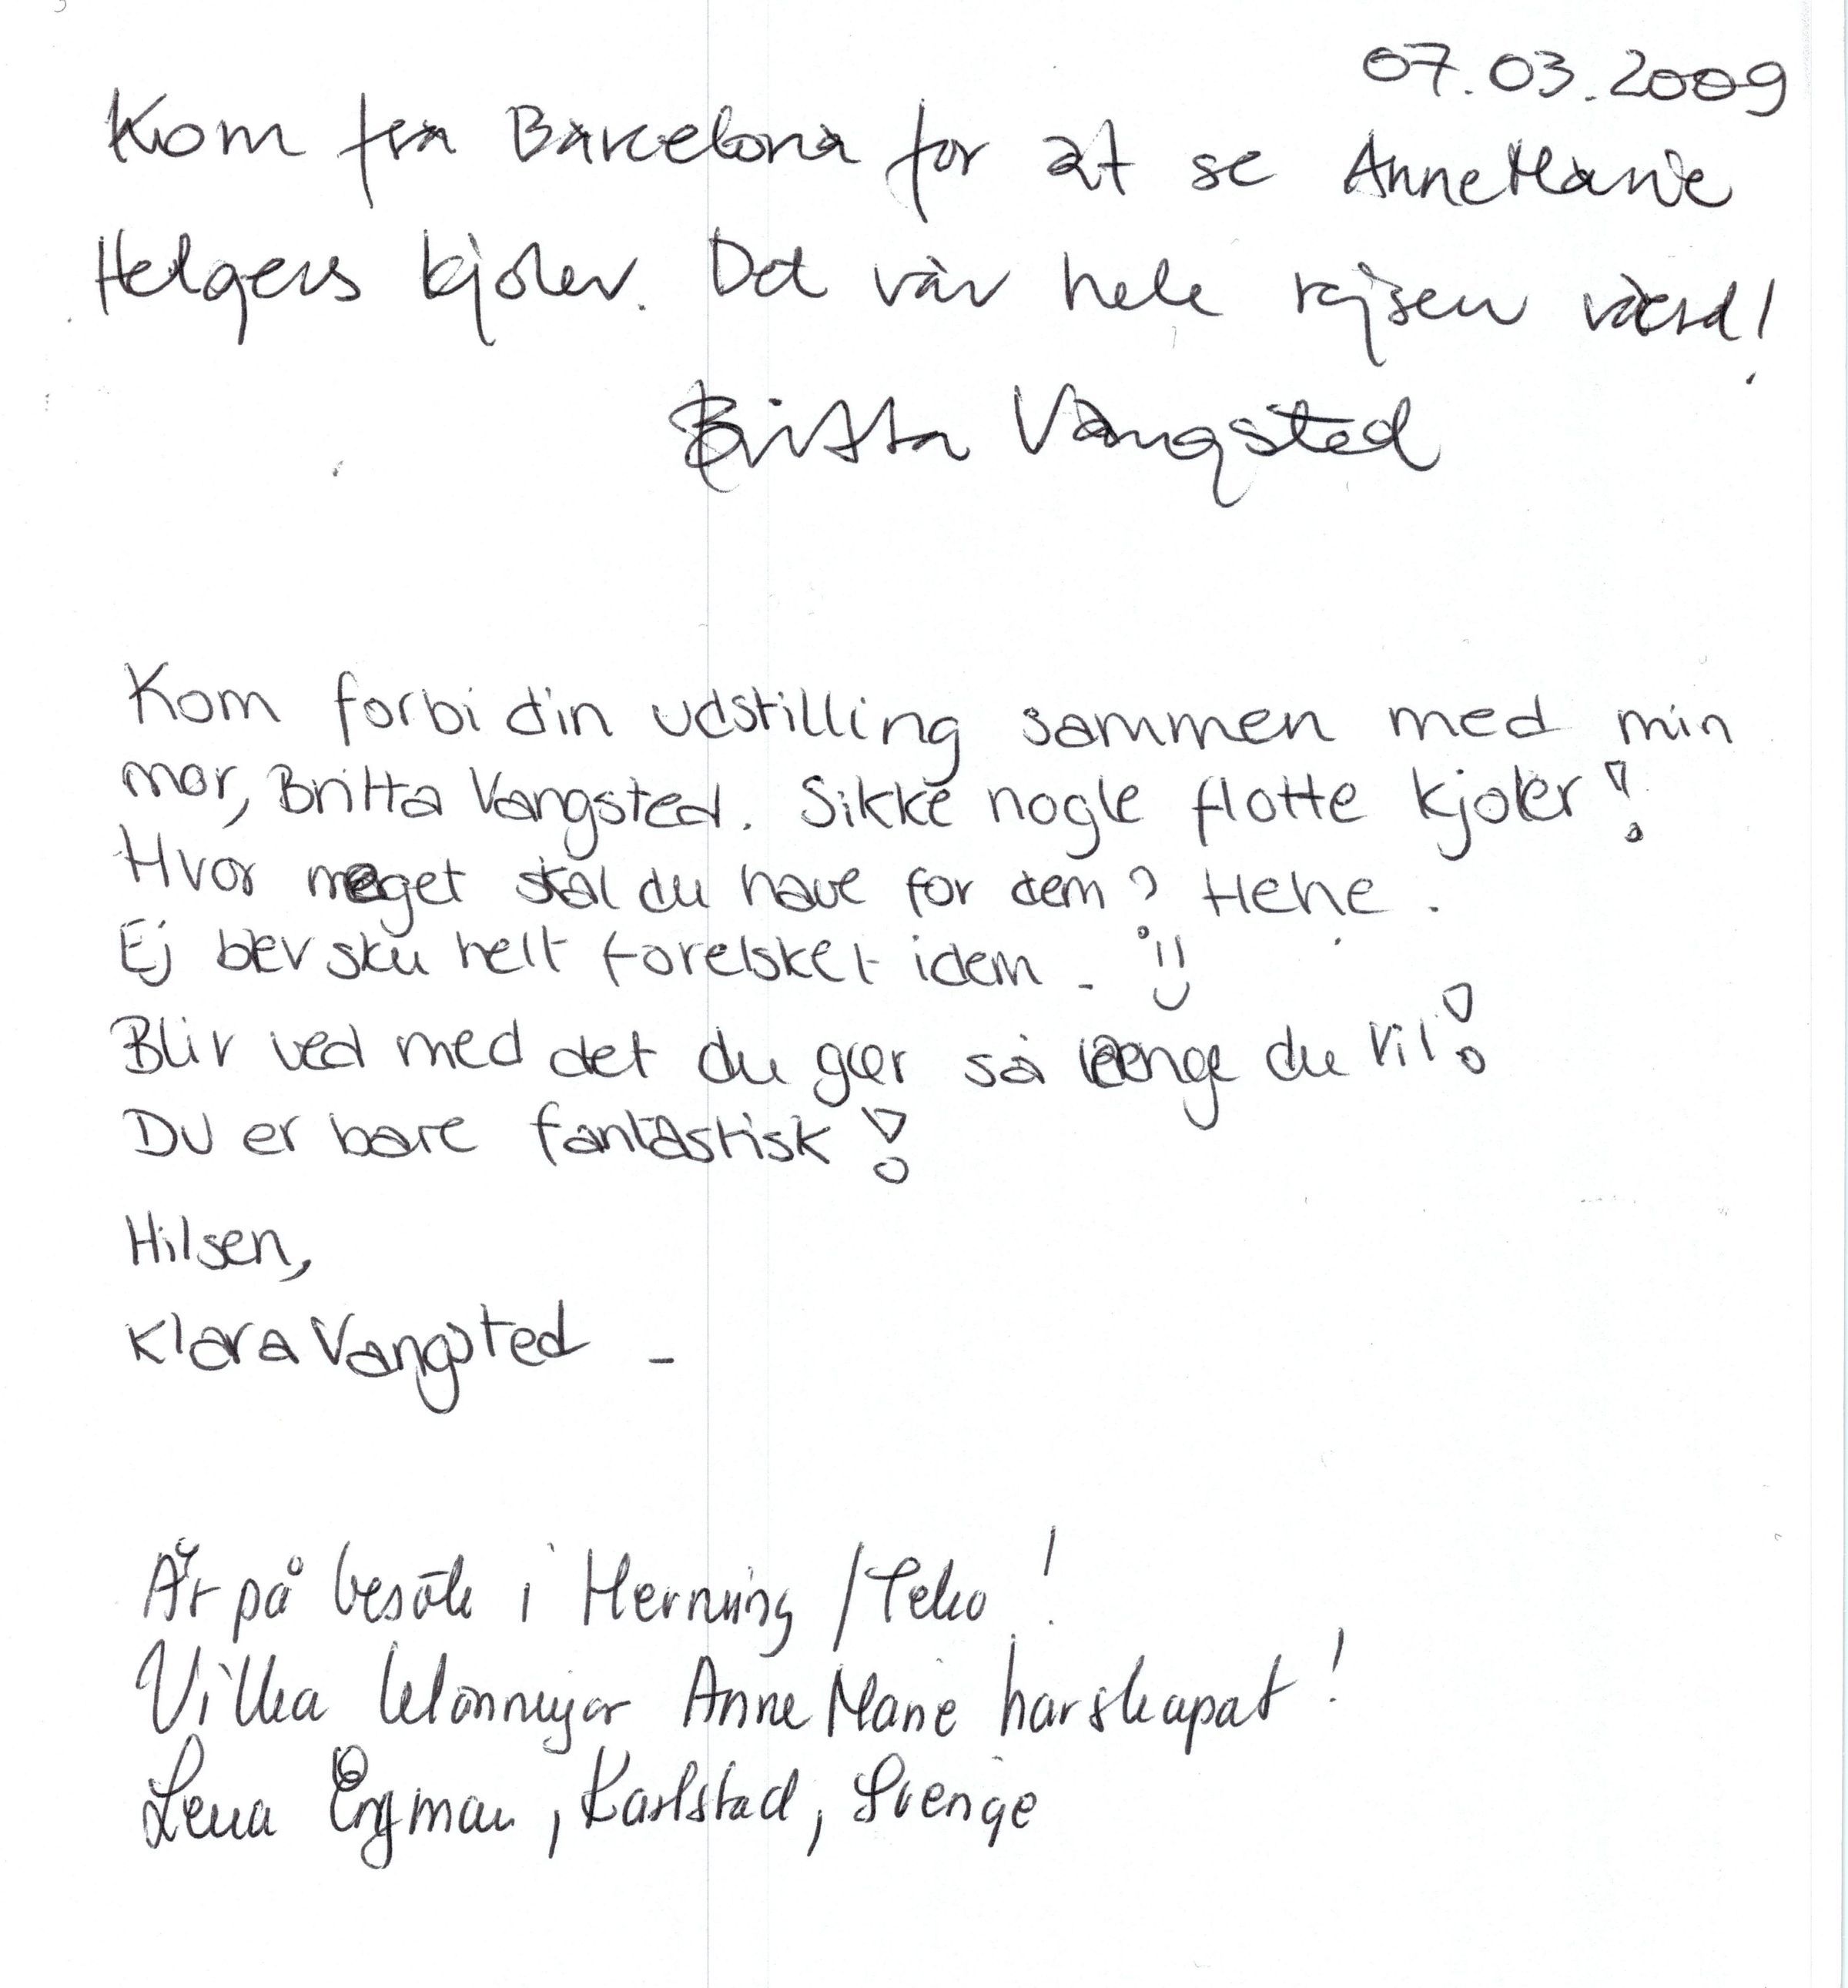 07.03.2009
Kom fra Barcelona for at se AnneMarie
Helgers kjoler. Det var hele rejsen værd!
Britta Vangsted
Kom forbi din udstilling sammen med min
mor, Britta Vangsted. Sikke nogle flotte kjoler!
Hvor meget skal du have for dem? Hehe.
Ej blev sku helt forelsket idem. :)
Bliv ved med det du gør så længe du vil!
Du er bare fantastisk!
Hilsen,
Klara Vangsted -
Är på besök i Herning / Teko!
Vilka klänningar AnneMarie har skapat!
Lena Engman, Karlstad, Sverige